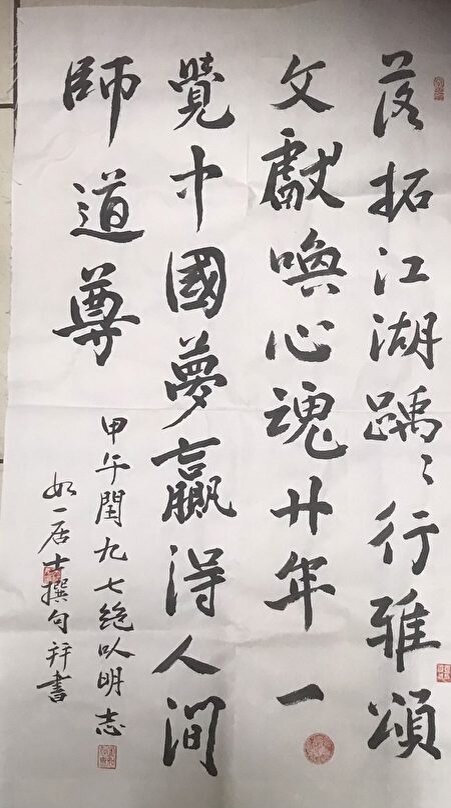 落拓江湖踽〻行雅頌
文獻喚心魂廿年一
覺中國夢贏得人間
師道尊
甲午閏九七絶以明志
如一居士撰句拜書